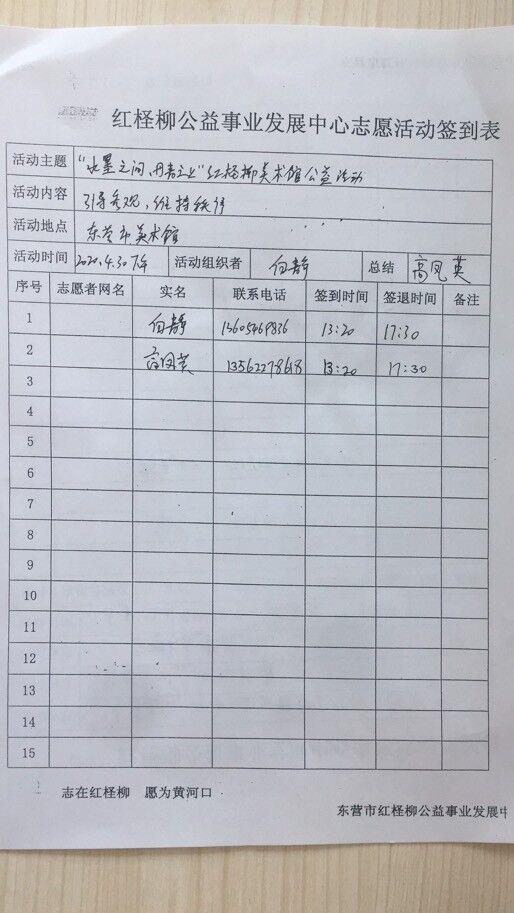 红柽柳公益事业发展中心志愿活动签到表
活动主题 "水墨之间,丹青之上"红柽柳美术馆公益活动
活动内容 引导参观,维持秩序
活动地点 东营市美术馆
活动时间 2020.4.30下午 活动组织者 向静 总结 高凤英
序号 志愿者网名 实名 联系电话 签到时间 签退时间 备注
1 向静 13:20 17:30
2 高凤英 13562278618 13:20 17:30
3
4
5
6
7
8
9
10
11
12
13
14
15
志在红柽柳 愿为黄河口
东营市红柽柳公益事业发展中